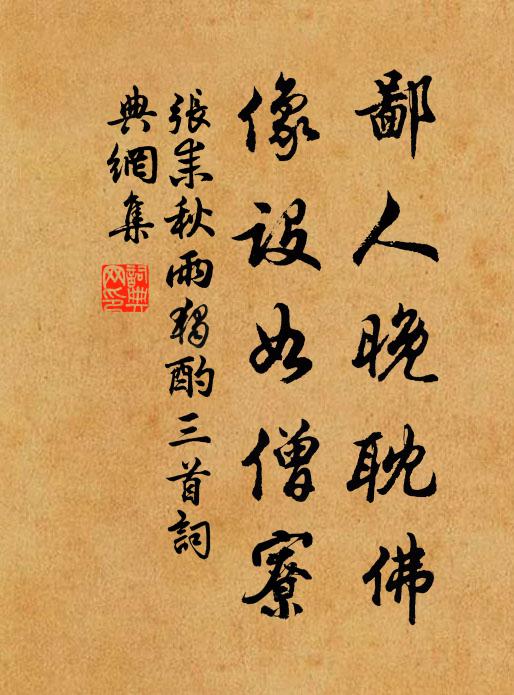 鄙人晚耽佛
像設如僧寮
張耒秋雨獨酌三首詞
典網集
詞典網印